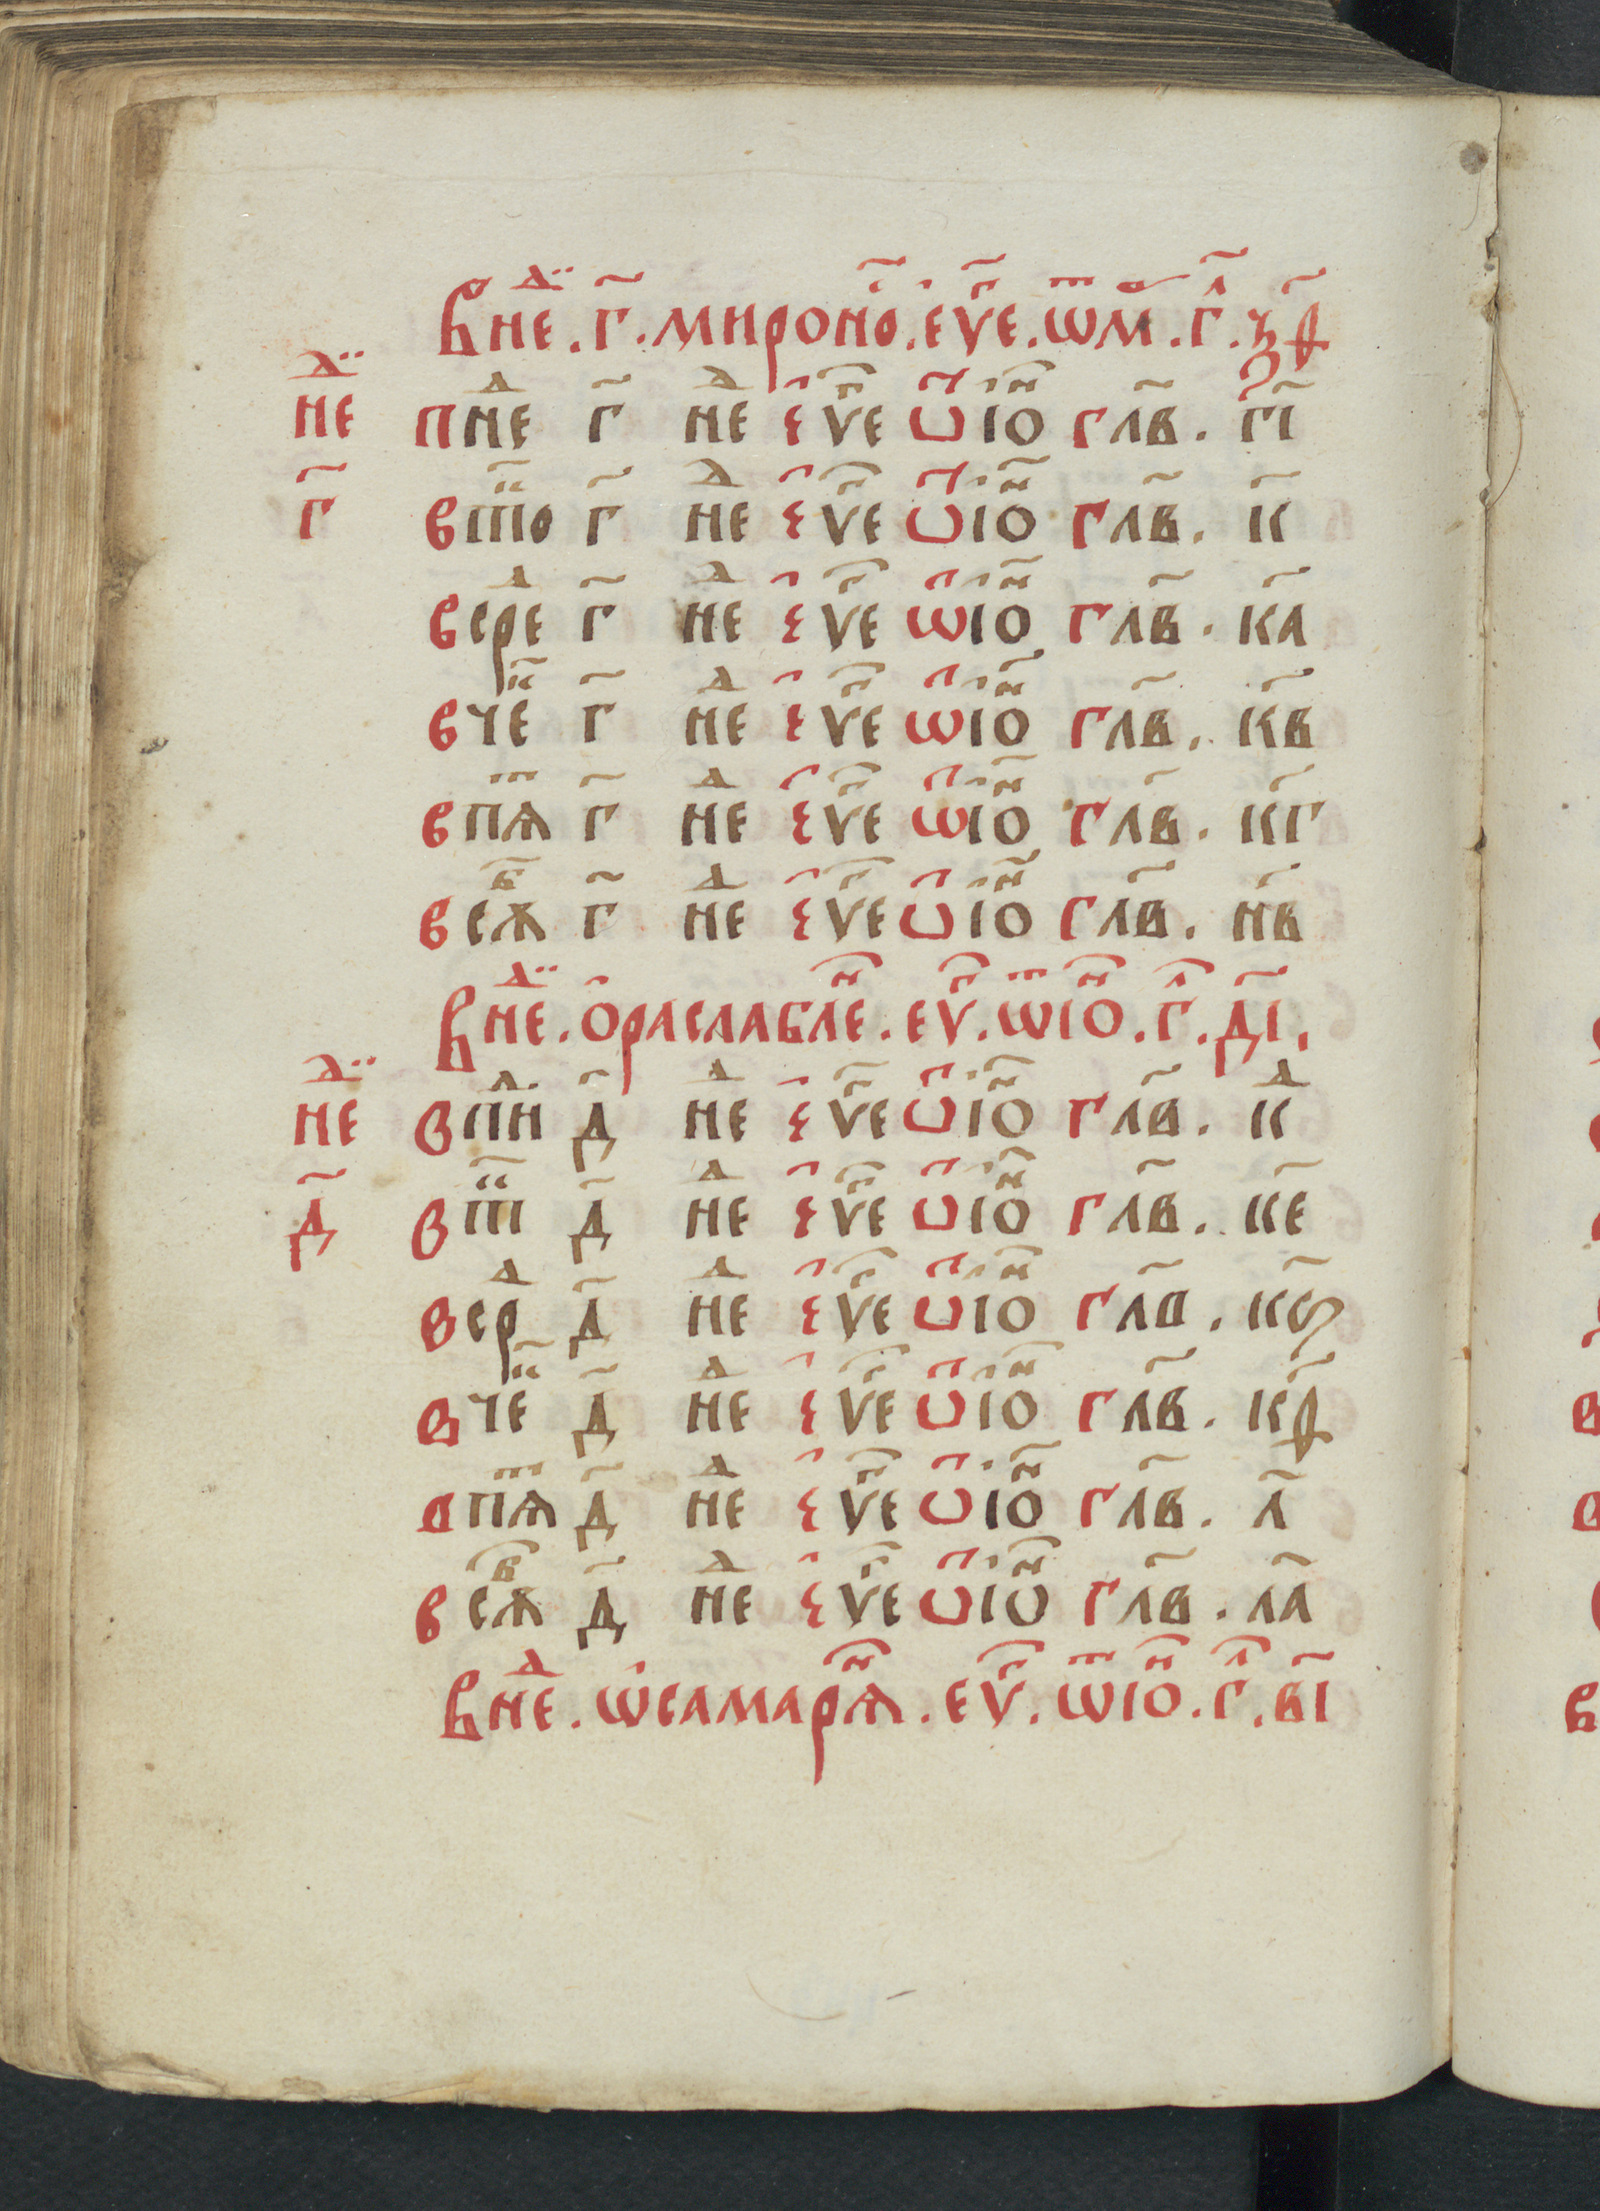 Внеⷣ. г҃. мироно҃. еѵⷢ҇е. ѿмⷴ. гⷧ҇. ѯ҃ѳ
неⷣ пнеⷣ г҃ неⷣ є҆ ѵⷢ҇е ѿ іѡⷩ҇ глв҃. г҃і
г҃ втⷦ҇о г҃ неⷣ є҆ ѵⷢ҇е ѿ іоⷩ҇ глв҃. к҃
всреⷣ г҃ неⷣ є҆ ѵⷢ҇е ѿ іоⷩ҇ глв҃. к҃а
вчеⷦ҇ г҃ неⷣ є҆ ѵⷢ҇е ѿ іоⷩ҇ глв҃. к҃в
впѧⷮ г҃ неⷣ є҆ ѵⷢ҇е ѿ іоⷩ҇ глв҃. к҃г
всѧⷠ҇ г҃ неⷣ є҆ ѵⷢ҇е ѿ іоⷩ҇ глв҃. н҃в
Внеⷣ. ораслаблеⷩ҇. еѵⷢ҇. ѿіоⷩ҇. гⷧ҇. д҃і.
неⷣ впⷣн д҃ неⷣ є҆ ѵⷢ҇е ѿ іоⷩ҇ глв҃. кⷣ
д҃ втⷦ҇ д҃ неⷣ є҆ ѵⷢ҇е ѿ іоⷩ҇ глв҃. к҃е
всрⷣ д҃ неⷣ є҆ ѵⷢ҇е ѿ іоⷩ҇ глв҃. к҃ѕ
вчеⷦ҇ д҃ неⷣ є҆ ѵⷢ҇е ѿ іоⷩ҇ глв҃. к҃ѳ
впѧⷮ д҃ неⷣ є҆ ѵⷢ҇е ѿ іоⷩ҇ глв҃. л҃
всѧⷠ҇ д҃ неⷣ є҆ ѵⷢ҇е ѿ іоⷩ҇ глв҃. л҃а
Внеⷣ. ѡсамарѧⷩ҇. еѵⷢ҇. ѿіоⷩ҇. гⷧ҇. в҃і